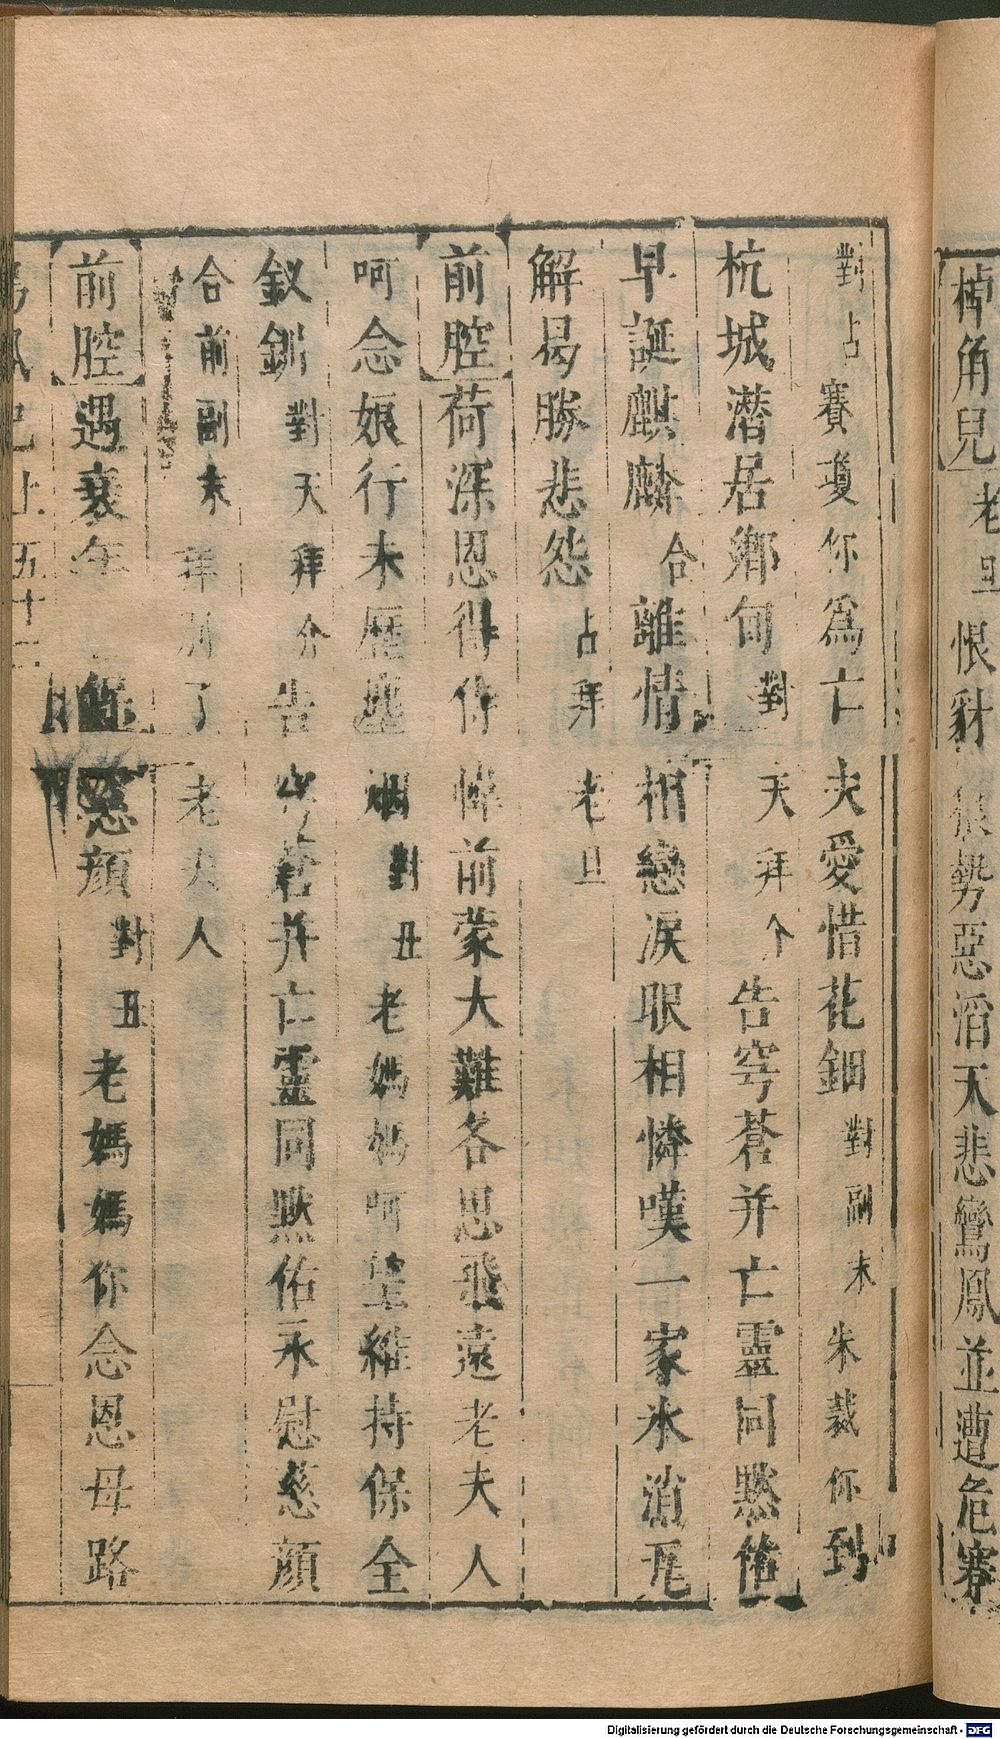 棹角兒 老旦 恨豺 狠勢惡滔天悲鸞鳳並遭危蹇
對占 賽瓊你爲亡夫愛惜花鈿 對副末 朱裁你到
杭城潛居鄉旬 對天拜介 告穹蒼并亡靈同黙
早誕麒麟 合 離情相戀淚眼相憐嘆一家氷消瓦
解曷勝悲怨 占拜老旦
前腔 荷深恩得你 前蒙大難各思飛遠老夫人
呵念娘行未歷 烟 對丑 老媽媽呵 維持保全
釵釧 對天拜介 告穹蒼并亡靈同黙佑永慰慈顔
合前副末 拜別了老夫人
前腔 遇衰年 慈顔 對丑 老媽媽你念恩母路
上 五十二
Digitalisierung gefördert durch die Deutsche Forschungsgemeinschaft - DFG